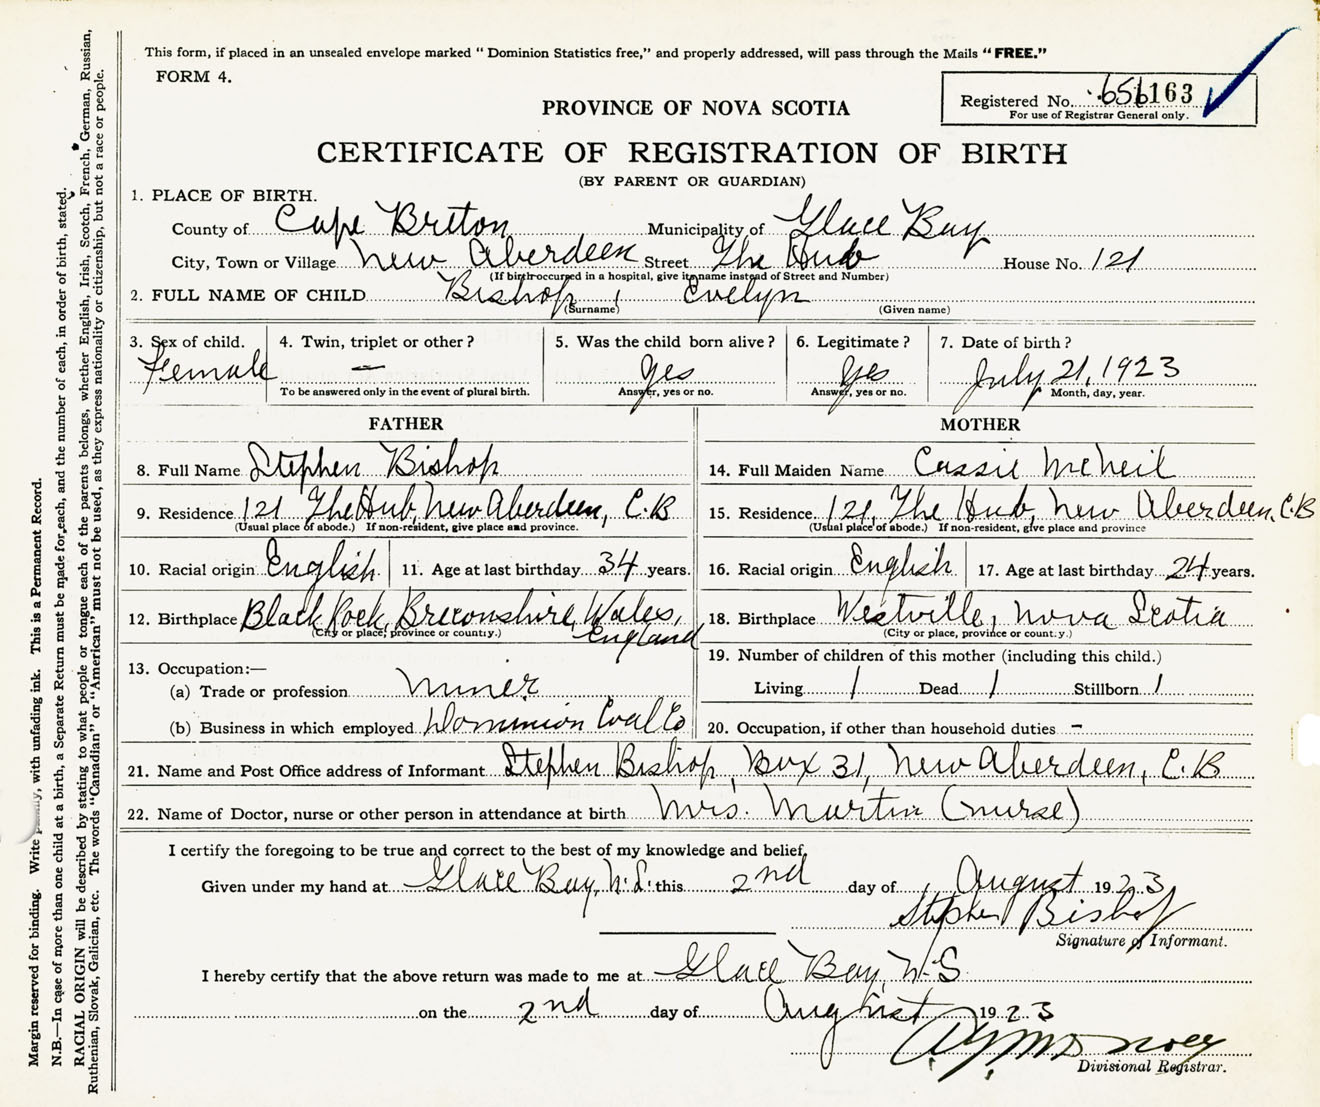 This form, if placed in an unsealed envelope marked "Dominion Statistics free," and properly addressed, will pass through the Mails "FREE."
FORM 4.
Registered No. 656163
For use of Registrar General only.
PROVINCE OF NOVA SCOTIA
CERTIFICATE OF REGISTRATION OF BIRTH
(BY PARENT OR GUARDIAN)
1. PLACE OF BIRTH.
County of Cape Breton Municipality of Glace Bay
City, Town or Village New Aberdeen Street The Hub House No. 121
(If birth occurred in a hospital, give its name instead of Street and Number)
2. FULL NAME OF CHILD Bishop, Evelyn
(Surname) (Given name)
3. Sex of child. 4. Twin, triplet or other? 5. Was the child born alive? 6. Legitimate? 7. Date of birth?
Female — Yes Yes July 21, 1923
To be answered only in the event of plural birth. Answer, yes or no. Answer, yes or no. Month, day, year.
FATHER MOTHER
8. Full Name Stephen Bishop 14. Full Maiden Name Cassie McNeil
9. Residence 121 The Hub, New Aberdeen, C.B 15. Residence 121, The Hub, New Aberdeen, C.B
(Usual place of abode.) If non-resident, give place and province. (Usual place of abode.) If non-resident, give place and province
10. Racial origin English 11. Age at last birthday 34 years. 16. Racial origin English 17. Age at last birthday 24 years.
12. Birthplace Black Rock, Breconshire, Wales, England 18. Birthplace Westville, Nova Scotia
(City or place, province or country.) (City or place, province or country.)
13. Occupation:— 19. Number of children of this mother (including this child.)
(a) Trade or profession Miner Living 1 Dead 1 Stillborn 1
(b) Business in which employed Dominion Coal Co 20. Occupation, if other than household duties –
21. Name and Post Office address of Informant Stephen Bishop, Box 31, New Aberdeen, C.B
22. Name of Doctor, nurse or other person in attendance at birth Mrs. Martin (nurse)
I certify the foregoing to be true and correct to the best of my knowledge and belief,
Given under my hand at Glace Bay, N.S. this 2nd day of August 1923
Stephen Bishop
Signature of Informant.
I hereby certify that the above return was made to me at Glace Bay, N.S
on the 2nd day of August 1923
Divisional Registrar.
Margin reserved for binding. Write plainly, with unfading ink. This is a Permanent Record.
N.B.—In case of more than one child at a birth, a Separate Return must be made for each, and the number of each, in order of birth, stated.
RACIAL ORIGIN will be described by stating to what people or tongue each of the parents belongs, whether English, Irish, Scotch, French, German, Russian,
Ruthenian, Slovak, Galician, etc. The words "Canadian" or "American" must not be used, as they express nationality or citizenship, but not a race or people.